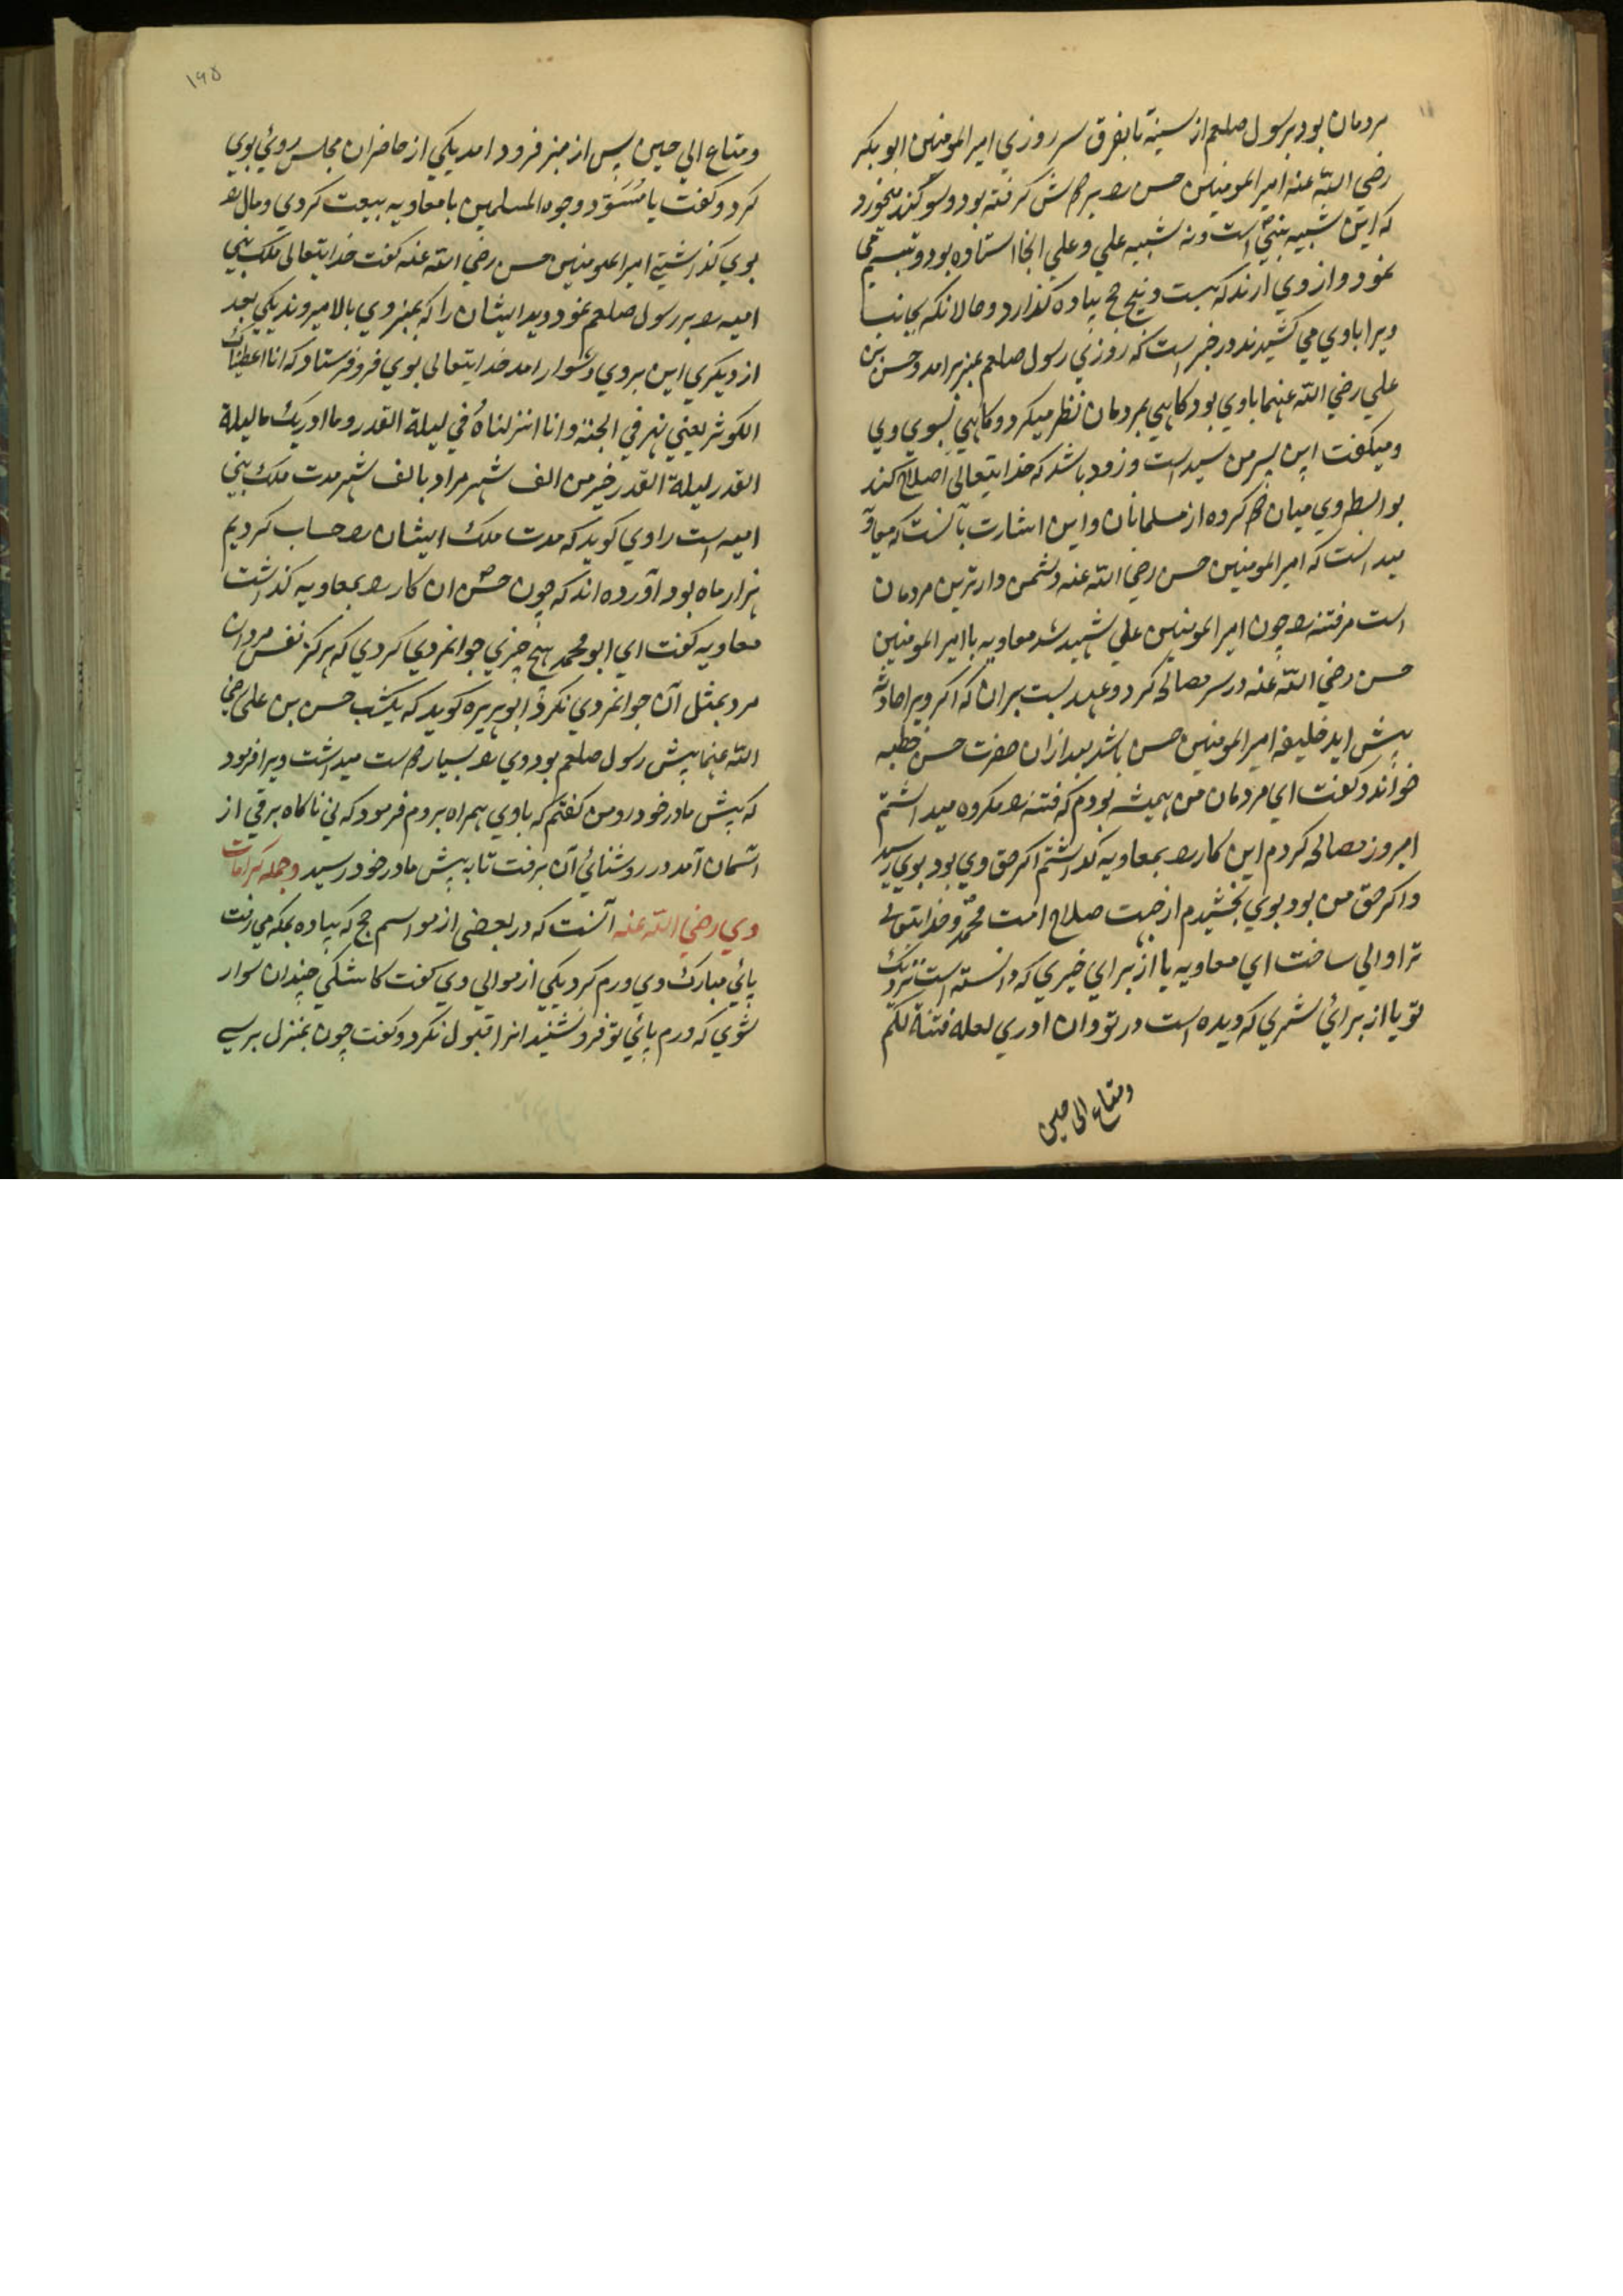 مردمان بود برسول صلعم از سینه تا بفرق سر روزي امیر المومنین ابو بکر
رضي الله عنه امیر المومنین حسن را بر دوش گرفته بود و سوکند میخورد
که این شبیه بنبي است و نه شبیه علي و علي انجا استاده بود و تبسم می
نمود و از وي ارند که بیست و پنج حج پیاده گذارد و حال انکه بجانب
ویرا باوي مي کشیدند در خبر است که روزي رسول صلعم بمنبر برامد و حسن بن
علي رضي الله عنهما باوي بود کاهي بمردمان نظر میکرد و کاهي بسوي وي
و میکفت این پسر من سید است و زود باشد که خدایتعالی اصلاح کند
بواسطه وي میان دو کروه از مسلمانان و این اشارت بآنست که معاویه
میدانست که امیر المومنین حسن رضي الله عنه دشمن دارترین مردمان
است مر فتنه را چون امیر المومنین علي شهید شد معاویه با امیر المومنین
حسن رضي الله عنه در سر مصالحه کرد و عهد بست بران که اکر ویرا حادثه
پیش اید خلیفه امیر المومنین حسن باشد بعد ازان حضرت حسن خطبه
خواند و کفت اي مردمان من همیشه بودم که فتنه را مکروه میداشتم
امروز مصالحه کردم این کار را بمعاویه کذاشتم اکر حق وي بود بوي رسید
و اکر حق من بود بوي بخشیدم از جهت صلاح امت محمد و خدایتعالی
ترا والي ساخت اي معاویه یا از براي خیري که دانسته است نزدیک
تو یا از براي شري که دیده است در تو وان ادري لعله فتنة لکم
ومتاع الی حین
۱۹۵
ومتاع الي حین پس از منبر فرود امد یکي از حاضران مجلس روئي بوي
کرد و کفت یا مُسَوّد وجوه المسلمین با معاویه بیعت کردي و مال را
بوي کذاشتي امیر المومنین حسن رضي الله عنه کفت خدایتعالی ملک بني
امیه را بر رسول صلعم نمود و دید ایشان را که بمنبر وي بالا میروند یکي بعد
از دیکري این بر وي دشوار امد خدایتعالی بوي فرو فرستاد که انا اعطیناک
الکوثر یعني نهر في الجنة و انا انزلناه في لیلة القدر وما ادریک ما لیلة
القدر لیلة القدر خیر من الف شهر مراد بالف شهر مدت ملک بني
امیه است راوي کوید که مدت ملک ایشان را حساب کردیم
هزار ماه بود آورده اند که چون حسن ان کار را بمعاویه کذاشت
معاویه کفت اي ابو محمد هیچ چیزي جوانمردي کردي که هرکز نفس مردان
مرد بمثل آن جوانمردي نکرد ابو هریره کوید که یکشب حسن بن علی رضي
الله عنهما پیش رسول صلعم بود وي را بسیار دوست میداشت ویرا فرمود
که پیش مادر خود رو من کفتم که باوي همراه بروم فرمود که ني ناکاه برقي از
اسمان آمد در روشنائي آن برفت تا به پیش مادر خود رسید و جمله کرامات
وي رضي الله عنه آنست که در بعضی از مواسم حج که پیاده بمکه مي رفت
پائي مبارک وي ورم کرد یکي از موالي وي کفت کاشکي چندان سوار
شوي که ورم پائي تو فرو نشنید انرا قبول نکرد و کفت چون بمنزل برسي